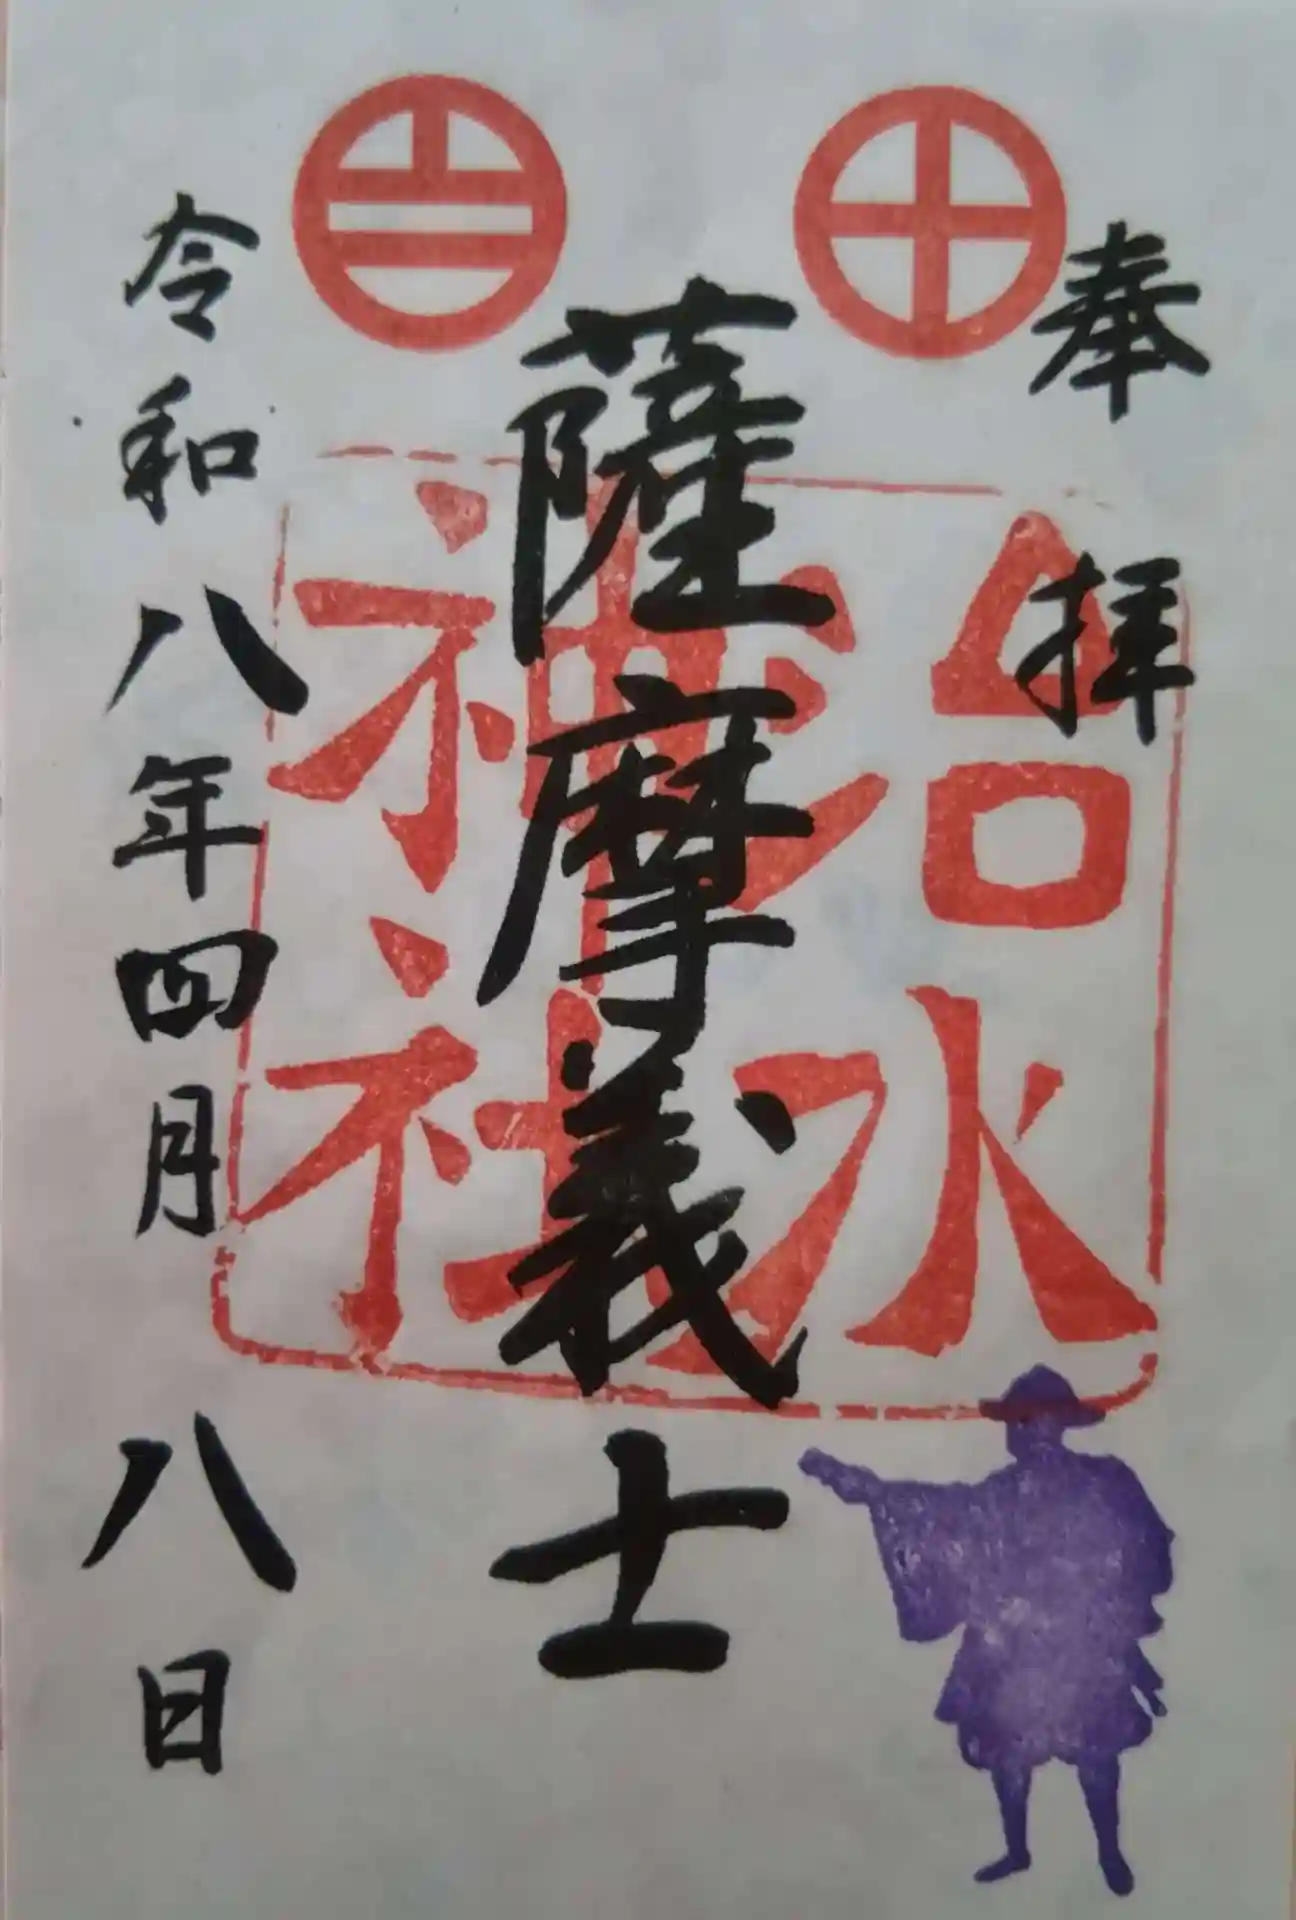 奉拝
治水
神社
薩摩義士
令和八年四月八日